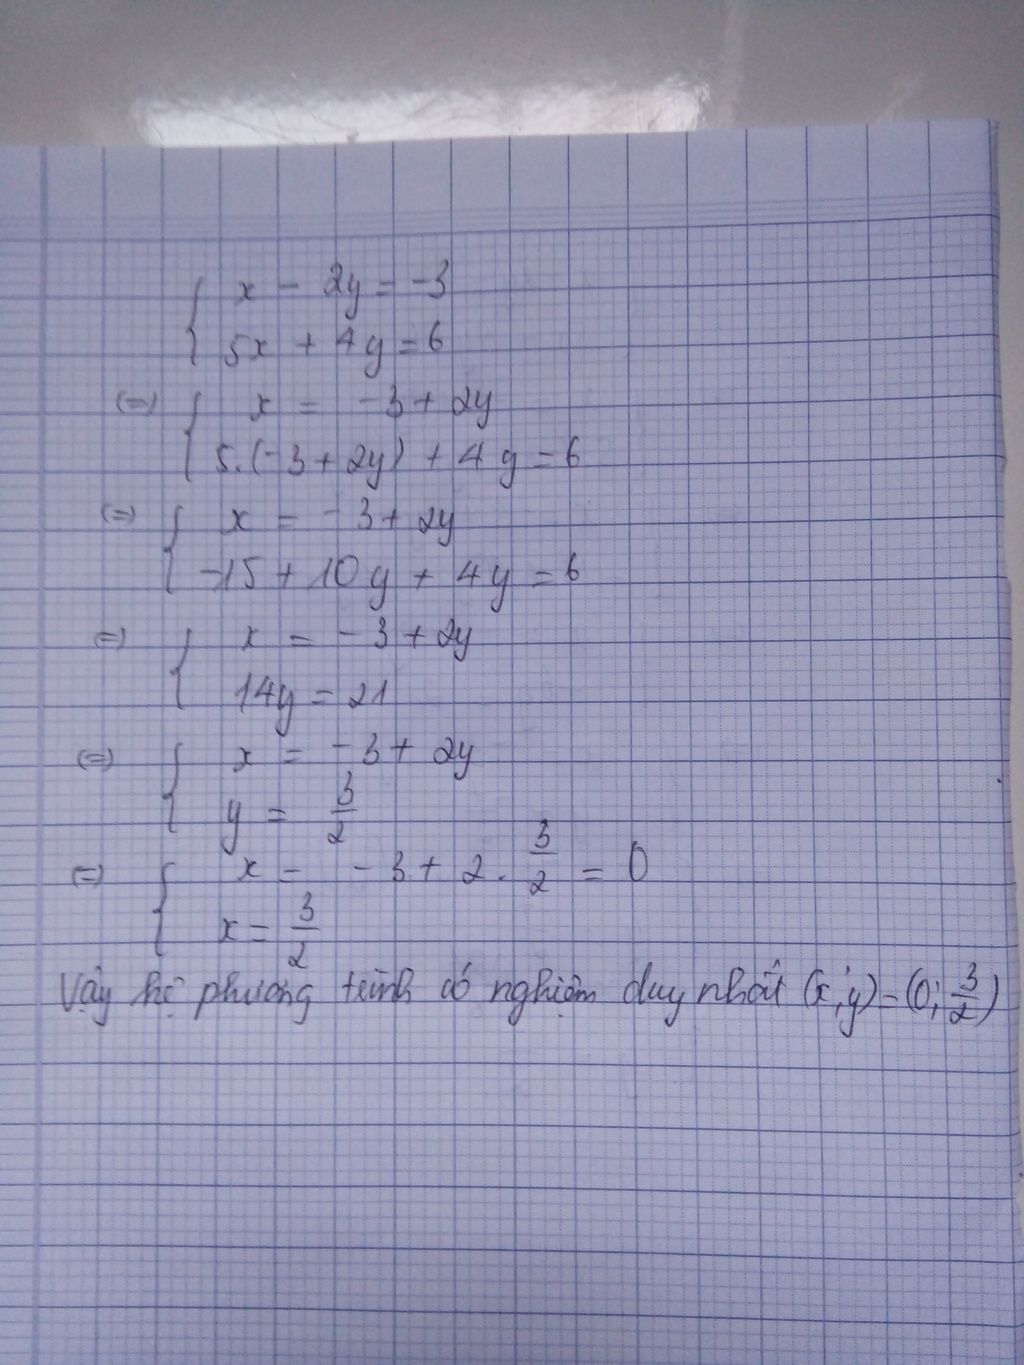 { x - 2y = -3
5x + 4y = 6
(=) { x = -3 + 2y
5.(-3 + 2y) + 4y = 6
(=) { x = -3 + 2y
-15 + 10y + 4y = 6
(=) { x = -3 + 2y
14y = 21
(=) { x = -3 + 2y
y = 3/2
(=) { x = -3 + 2. 3/2 = 0
x = 3/2
Vậy hệ phương trình có nghiệm duy nhất (x;y) = (0; 3/2)